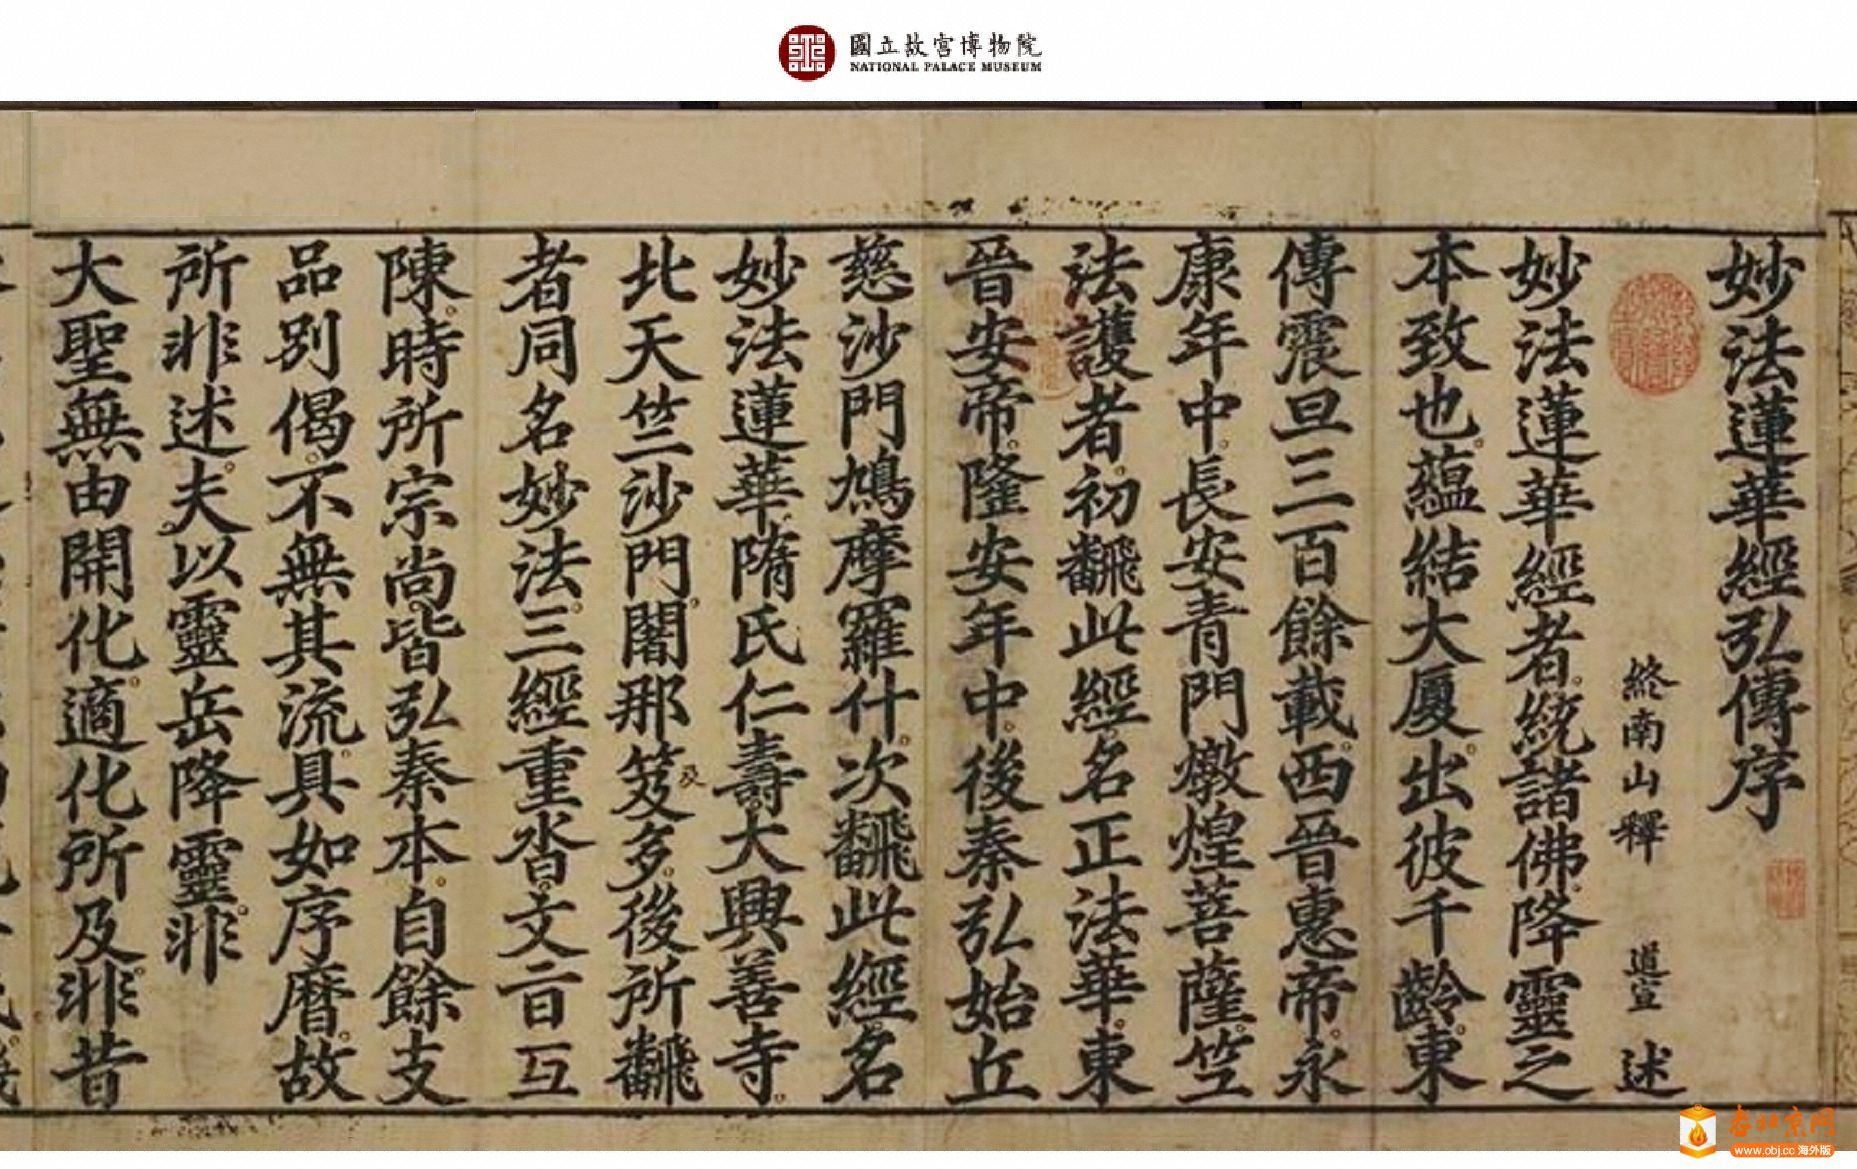 國立故宮博物院
NATIONAL PALACE MUSEUM
妙法蓮華經弘傳序
終南山釋 道宣 述
妙法蓮華經者。統諸佛。降靈之
本致也。蘊結大厦。出彼千齡。東
傳震旦三百餘載。西晉惠帝。永
康年中。長安青門燉煌菩薩。竺
法護者。初飜此經名正法華。東
晉安帝。隆安年中。後秦弘始丘
慈沙門鳩摩羅什。次飜此經名
妙法蓮華。隋氏仁壽大興善寺。
北天竺沙門。闍那笈多。後所飜
者同名妙法。三經重沓。文㫖互
陳。時所宗尚皆弘秦本。自餘支
品別偈。不無其流。具如序曆。故
所非述。夫以靈岳降靈。非
大聖無由開化。適化所及。非昔
老北京网
www.obj.cc 海外版